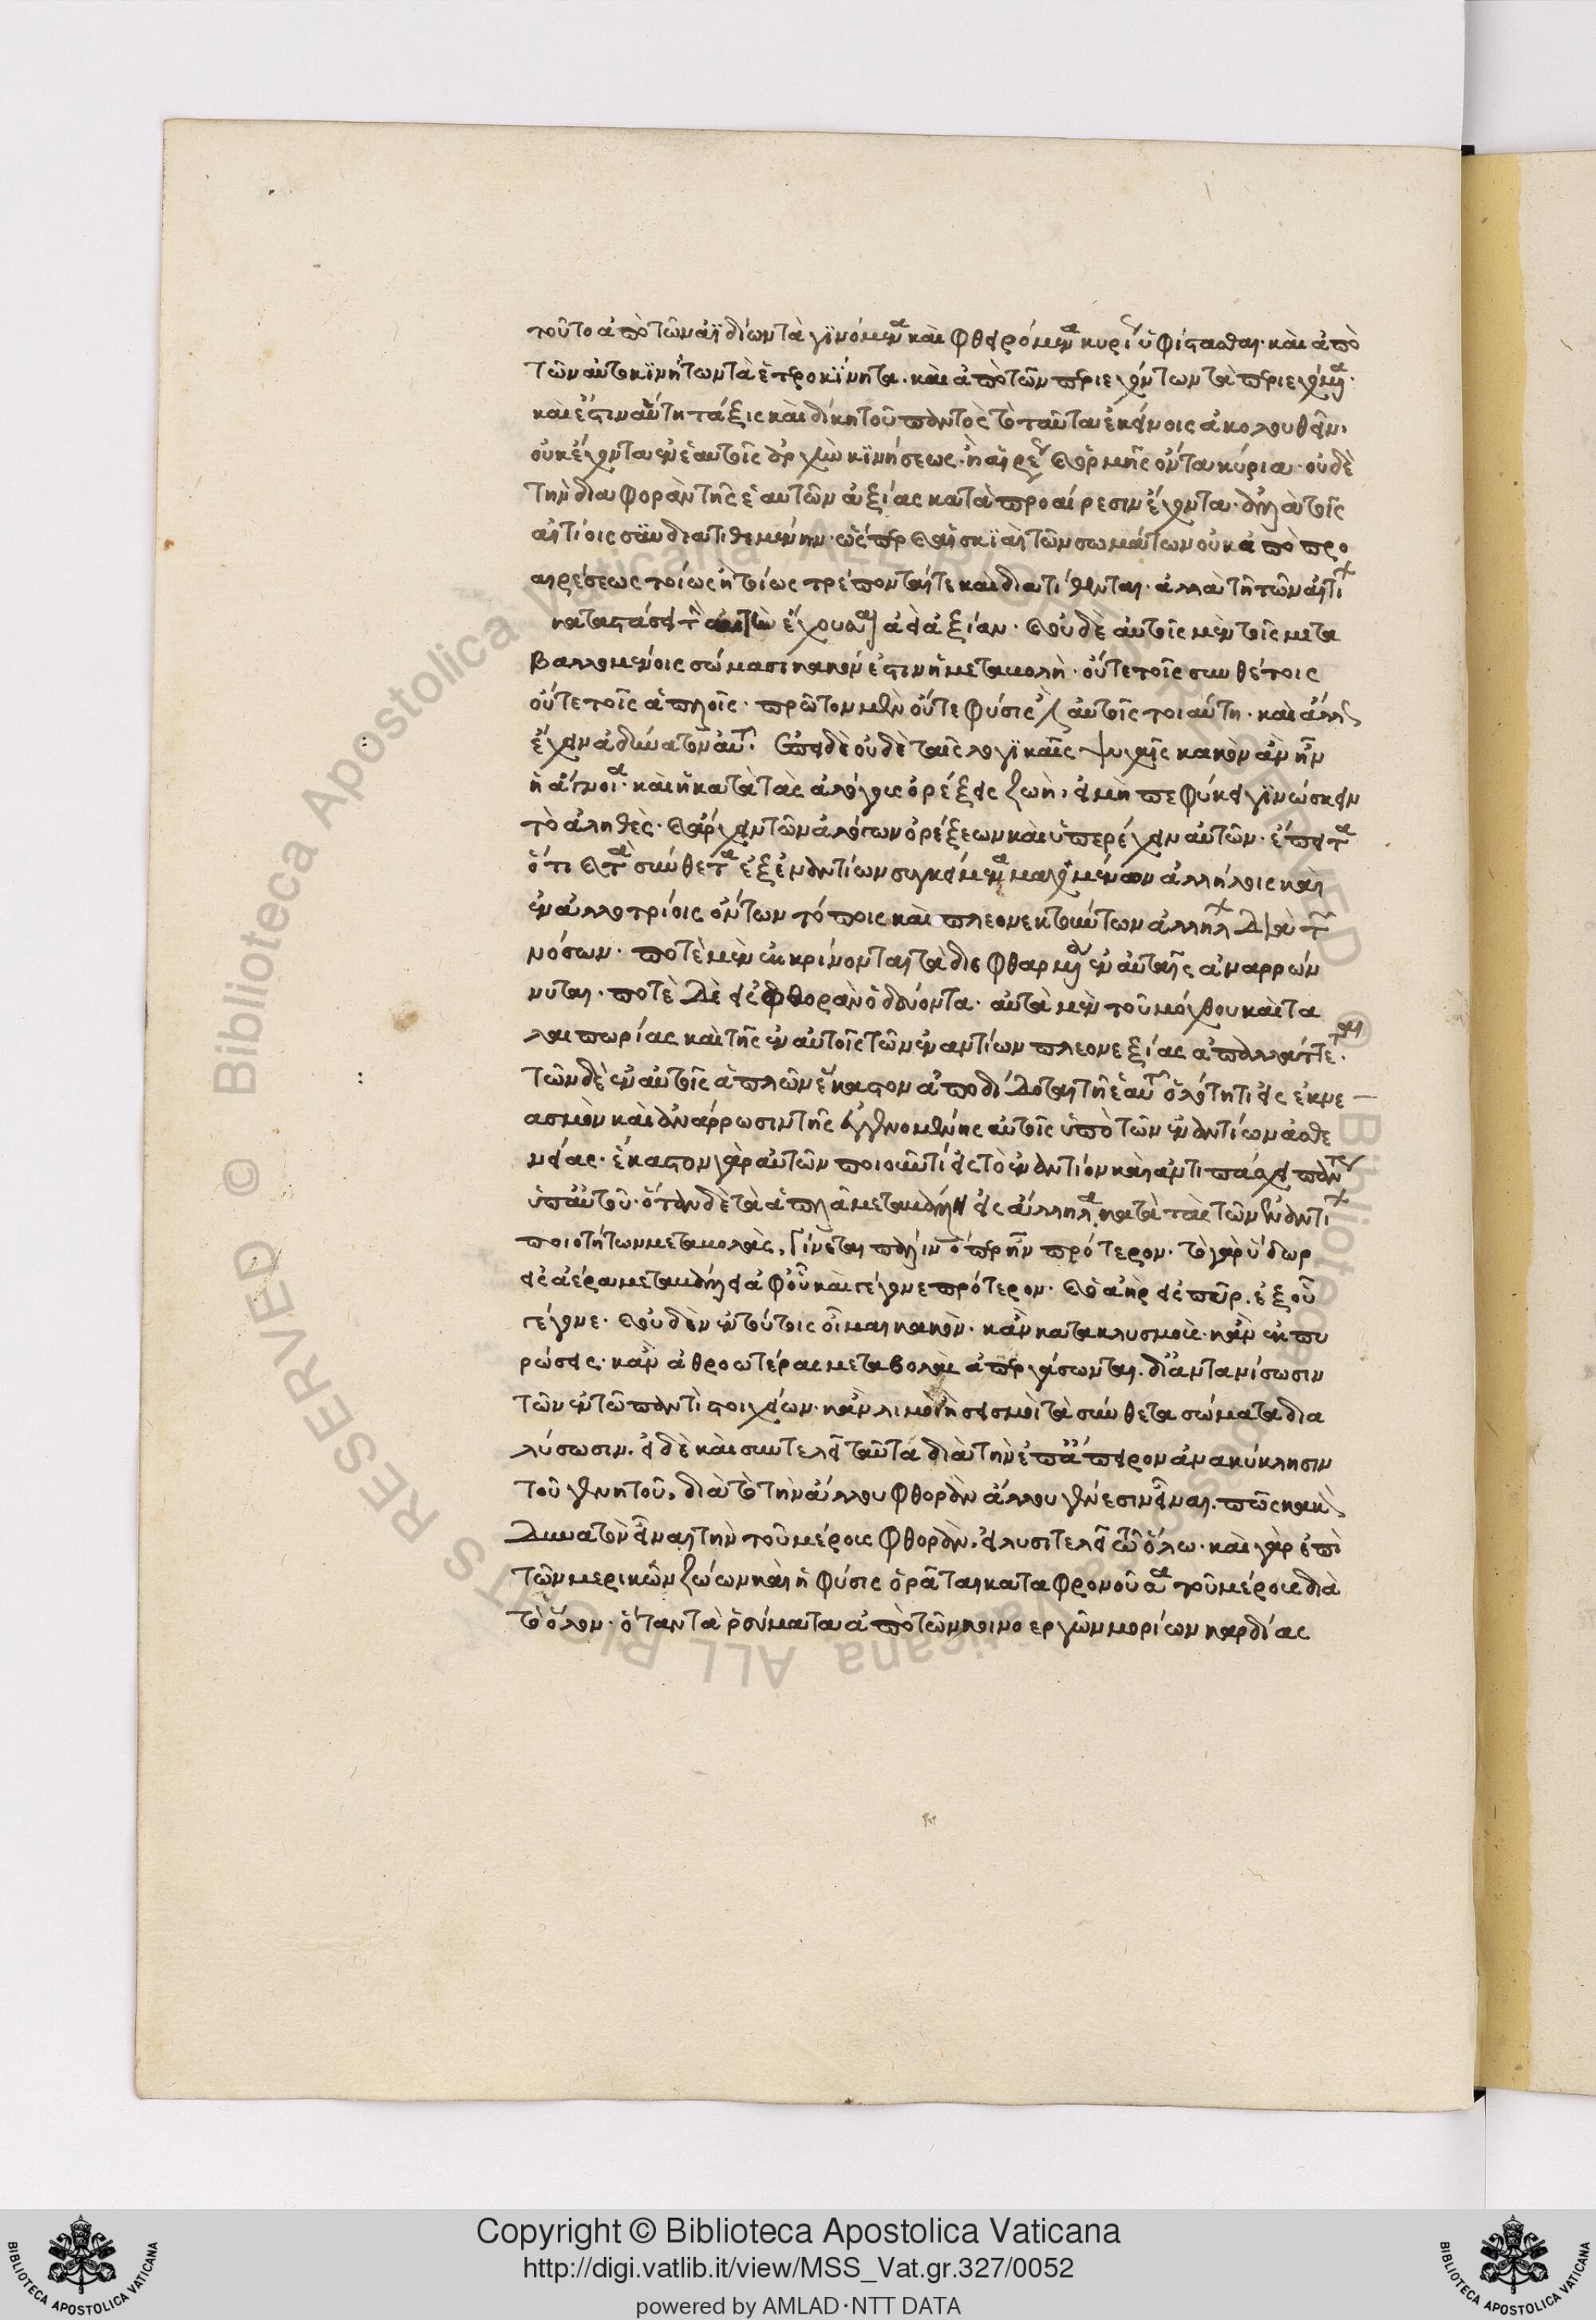 τοῦτο ἀπὸ τῶν ἀϊδίων τὰ γϊνόμενα καὶ φθειρόμενα κυρίως ὑφίστασθαι· καὶ ἀπὸ
τῶν αὐτοκϊνήτων τὰ ἑτεροκϊνητα. καὶ ἀπὸ τῶν περιεχόντων τὰ περιεχόμενα·
καὶ ἔστιν αὕτη τάξις καὶ δίκη τοῦ παντὸς τὸ ταῦτα ἐκείνοις ἀκολουθεῖν·
οὐκ ἔχοντα ἐν ἑαυτοῖς ἀρχὴν κϊνήσεως· ἢ αἱρέσεως ὁρμῆς ὄντα κύρια· οὐδὲ
τὴν διαφορὰν τῆς ἑαυτῶν ἀξίας κατὰ προαίρεσιν ἔχοντα· ἀλλὰ τοῖς
αἰτίοις συνδιατιθεμένην· ὥσπερ καὶ αἱ σκϊαὶ τῶν σωμάτων οὐκ ἀπὸ προ
αιρέσεως τοίως ἢ τοίως τρέπονταί τε καὶ διατίθενται· ἀλλὰ τῇ τῶν αἰτίων
καταστάσει τὴν ἔχουσαι ἀεὶ ἀξίαν· καὶ οὐδὲ αὐτοῖς μὲν τοῖς μετα
βαλλομένοις σώμασι κακόν ἐστιν ἡ μεταβολὴ· οὔτε τοῖς συνθέτοις
οὔτε τοῖς ἁπλοῖς· πρῶτον μὲν οὔτε φύσις ἐστὶν αὐτοῖς τοιαύτη· καὶ ἄλλως
ἔχειν ἀδύνατον αὐτ ἐπεὶ δὲ οὐδὲ ταῖς λογϊκαῖς ψυχαῖς κακὸν ἂν ἦν
ἡ ἄγνοια· καὶ ἡ κατὰ τὰς ἀλόγους ὀρέξεις ζωή, εἰ μὴ πεφύκει γϊνώσκειν
τὸ ἀληθές· καὶ ἄρχειν τῶν ἀλόγων ὀρέξεων καὶ ὑπερέχειν αὐτῶν· ἔπειτα
ὅτι καὶ τὰ σύνθετα ἐξ ἐναντίων συγκείμενα μαχομένων ἀλλήλοις καὶ
ἐν ἀλλοτρίοις ὄντων τόποις καὶ πλεονεκτούντων ἄλληλα διὰ τῶν
νόσων· ποτὲ μὲν ἐκκρίνονται τὰ διεφθαρμένα ἐν αὐταῖς ἀναρρων
νυται· ποτὲ δὲ εἰς φθορὰν ὁδεύοντα· αὐτὰ μὲν τοῦ μόχθου καὶ τα
λαιπωρίας καὶ τῆς ἐν αὐτοῖς τῶν ἐναντίων πλεονεξίας ἀπαλλάττεται·
τῶν δὲ ἐν αὐτοῖς ἁπλῶν ἕκαστον ἀποδίδοται τῇ ἑαυτῶν ὁλότητι εἰς ἐκνε
ασμὸν καὶ ἀνάρρωσιν τῆς ἐγγενομένης αὐτοῖς ὑπὸ τῶν ἐναντίων ἀσθε
νείας· ἕκαστον γὰρ αὐτῶν ποιοῦν τί εἰς τὸ ἐναντίον καὶ ἀντιπάσχει πάντως
ὑπ' αὐτοῦ· ὅταν δὲ τὰ ἁπλᾶ μεταβάλλῃ εἰς ἄλληλα κατὰ τὰς τῶν ἐναντίων
ποιοτήτων μεταβολὰς, γίνεται πάλιν ὅπερ ἦν πρότερον· τὸ γὰρ ὕδωρ
εἰς ἀέρα μεταβάλλει ἀφ' οὗ καὶ γέγονε πρότερον· καὶ ὁ ἀὴρ εἰς πῦρ. ἐξ οὗ
γέγονε· καὶ οὐδὲν ἐν τούτοις οἶμαι κακόν· κἂν κατακλυσμοὶ· κἂν ἐκπυ
ρώσεις· κἂν ἀθροωτέρας μεταβολὰς ἀπεργάσωνται. δι' ἀντανίσωσιν
τῶν ἐν τῷ παντὶ στοιχείων· κἂν λιμοὶ ἢ σεισμοὶ τὰ σύνθετα σώματα δια
λύσωσιν. εἰ δὲ καὶ συντελεῖ ταῦτα διὰ τὴν ἐπ' ἄπειρον ἀνακύκλησιν
τοῦ γενητοῦ, διὰ τὸ τὴν ἄλλου φθορὰν ἄλλου γένεσιν εἶναι. πῶς κακὸν
δυνατὸν εἶναι τὴν τοῦ μέρους φθορὰν, εἰ λυσιτελεῖ τῷ ὅλῳ· καὶ γὰρ ἐπὶ
τῶν μερικῶν ζώων καὶ ἡ φύσις ὁρᾶται καταφρονοῦσα τοῦ μέρους διὰ
τὸ ὅλον· ὅταν τὰ ῥεύματα ἀπὸ τῶν κοινοεργῶν μορίων καρδίας
Copyright © Biblioteca Apostolica Vaticana
http://digi.vatlib.it/view/MSS_Vat.gr.327/0052
powered by AMLAD·NTT DATA